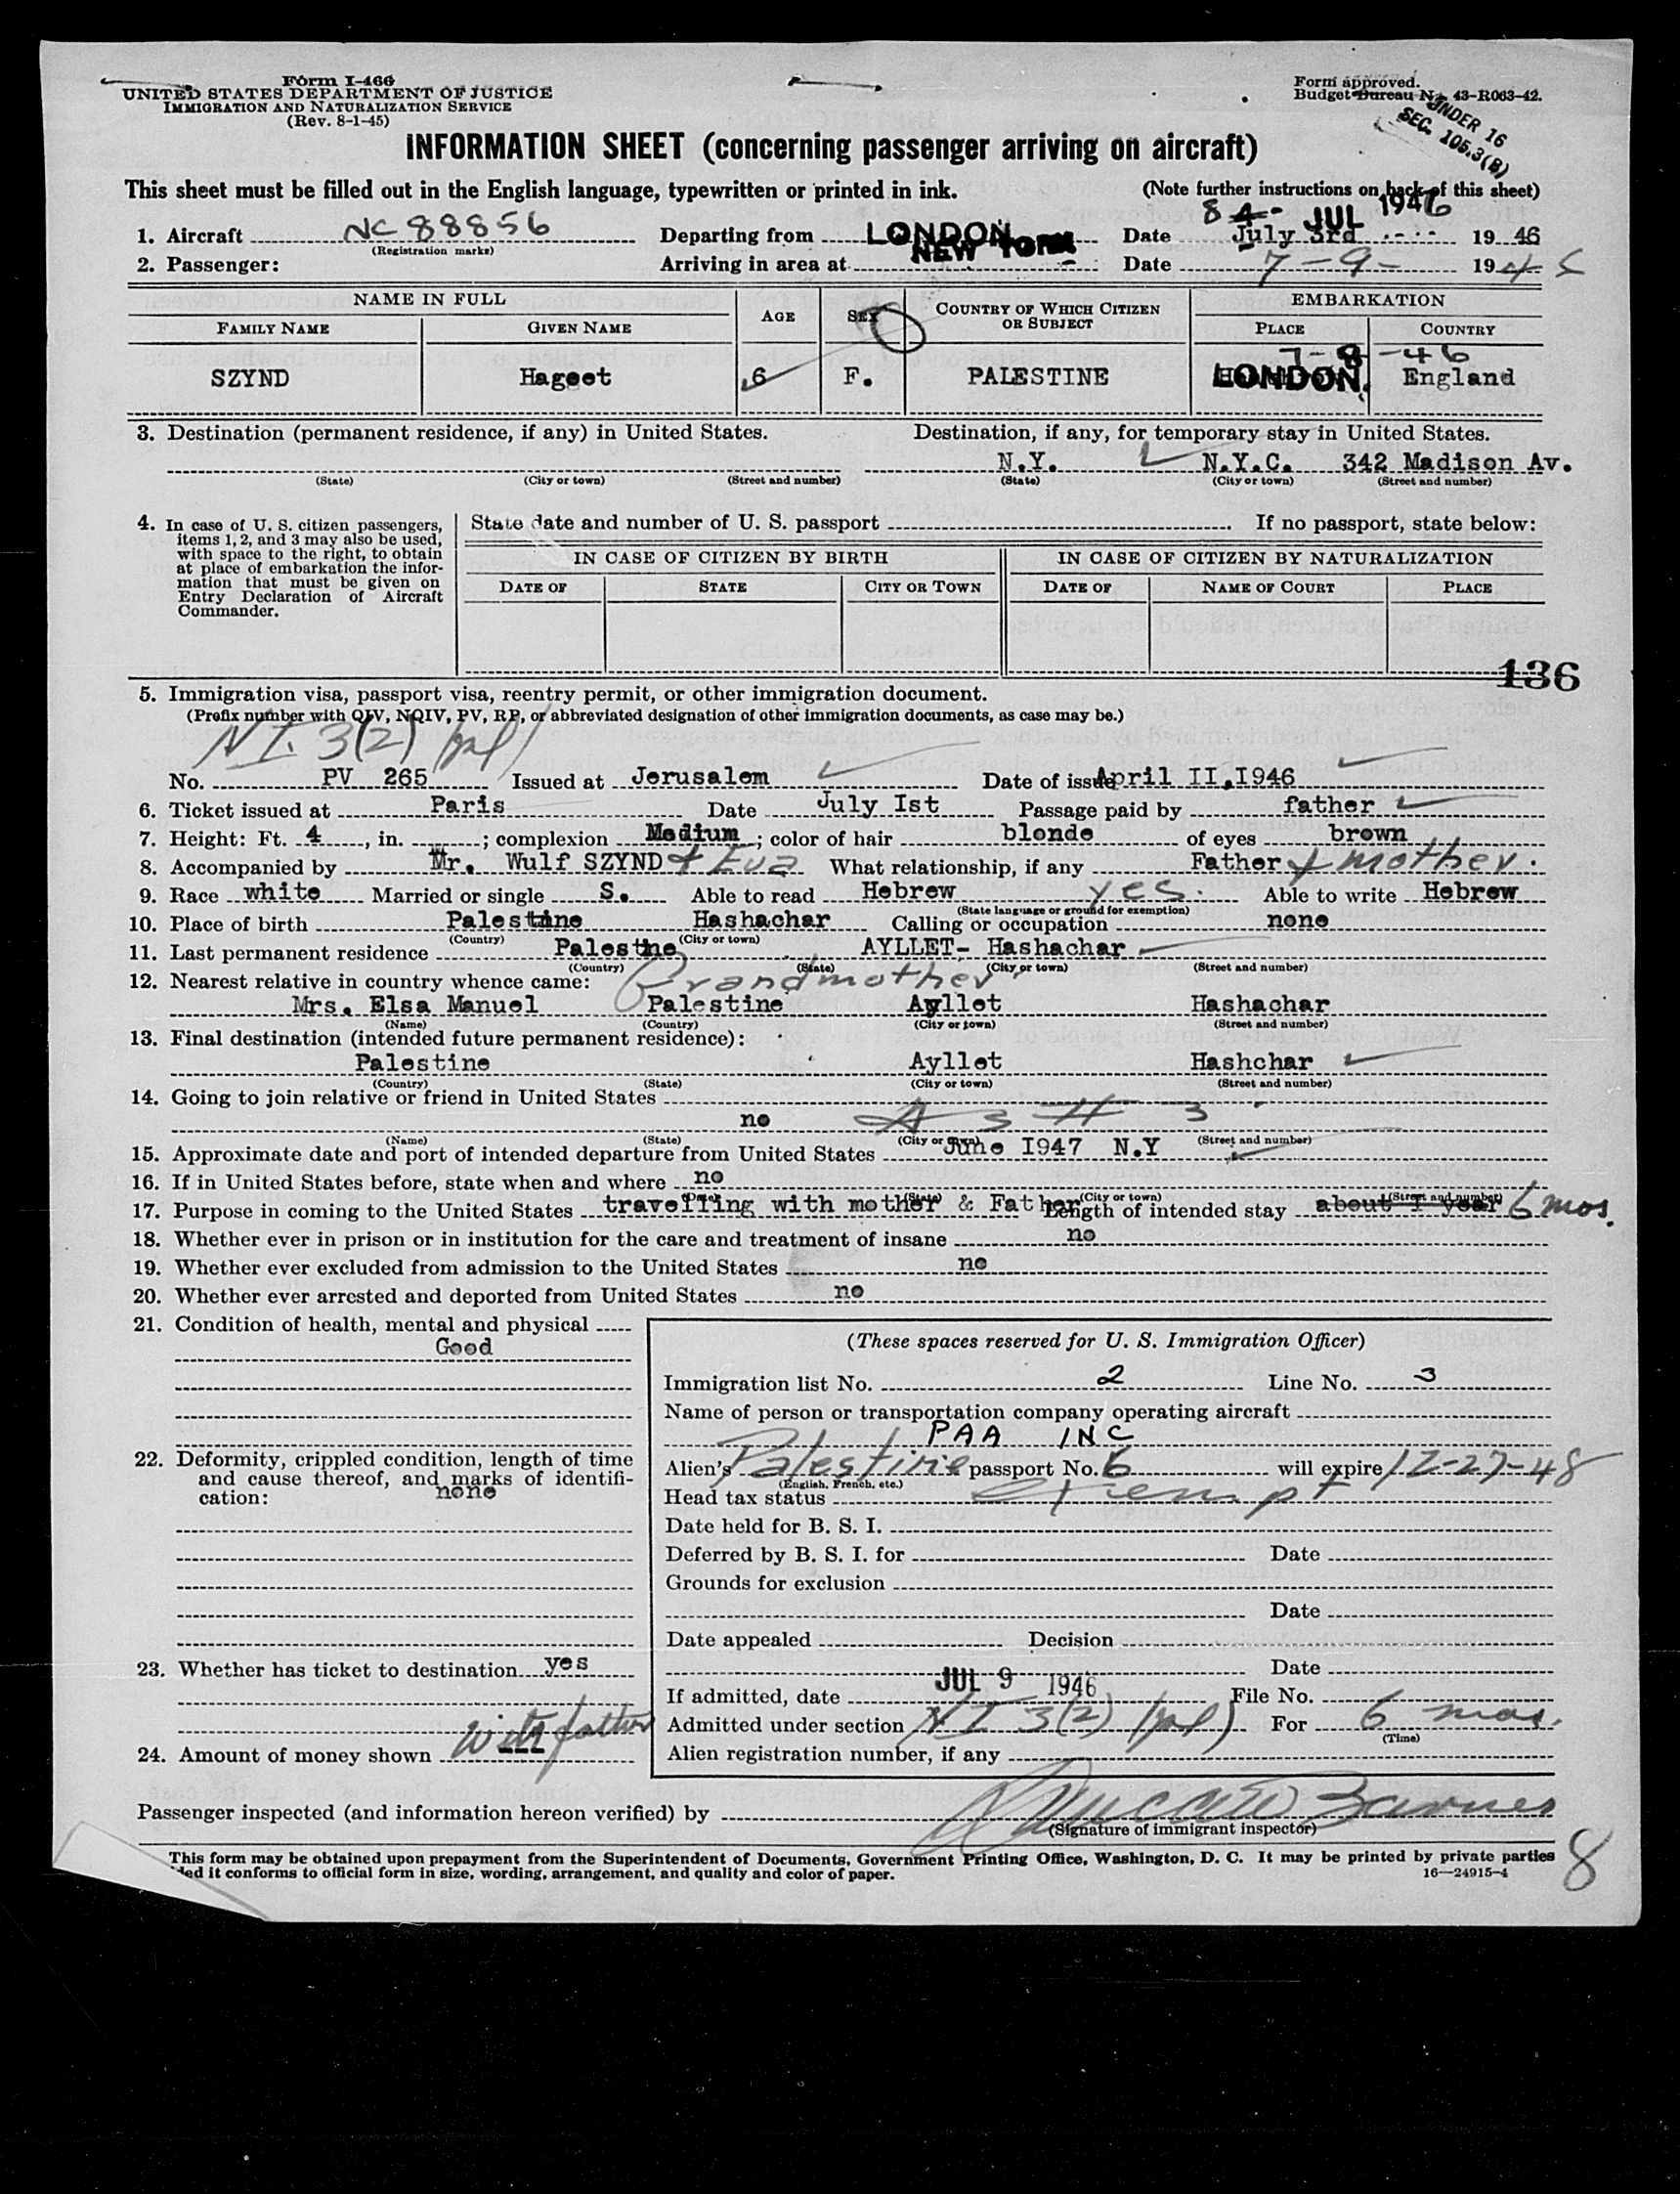 Form I-466
UNITED STATES DEPARTMENT OF JUSTICE
IMMIGRATION AND NATURALIZATION SERVICE
(Rev. 8-1-45)
Form approved.
Budget Bureau No. 43-R063-42.
UNDER 16
SEC. 105.3(B)
INFORMATION SHEET (concerning passenger arriving on aircraft)
This sheet must be filled out in the English language, typewritten or printed in ink. (Note further instructions on back of this sheet)
8 JUL 1946
1. Aircraft NC 88856 Departing from LONDON Date July 3rd 1946
(Registration marks)
2. Passenger: Arriving in area at NEW YORK Date 7-9- 194
NAME IN FULL AGE SEX COUNTRY OF WHICH CITIZEN OR SUBJECT EMBARKATION
FAMILY NAME GIVEN NAME PLACE COUNTRY
7-8-46
SZYND Hageet 6 F. PALESTINE LONDON. England
3. Destination (permanent residence, if any) in United States. Destination, if any, for temporary stay in United States.
N.Y. N.Y.C. 342 Madison Av.
(State) (City or town) (Street and number) (State) (City or town) (Street and number)
4. In case of U. S. citizen passengers, items 1, 2, and 3 may also be used, with space to the right, to obtain at place of embarkation the information that must be given on Entry Declaration of Aircraft Commander.
State date and number of U. S. passport If no passport, state below:
IN CASE OF CITIZEN BY BIRTH IN CASE OF CITIZEN BY NATURALIZATION
DATE OF STATE CITY OR TOWN DATE OF NAME OF COURT PLACE
136
5. Immigration visa, passport visa, reentry permit, or other immigration document.
(Prefix number with QIV, NQIV, PV, RP, or abbreviated designation of other immigration documents, as case may be.)
NI 3(2) (pal)
No. PV 265 Issued at Jerusalem Date of issue April II,I946
6. Ticket issued at Paris Date July Ist Passage paid by father
7. Height: Ft. 4, in. ; complexion Medium ; color of hair blonde of eyes brown
8. Accompanied by Mr. Wulf SZYND + Eva What relationship, if any Father + mother.
9. Race white Married or single S. Able to read Hebrew yes. Able to write Hebrew
(State language or ground for exemption)
10. Place of birth Palestine Hashachar Calling or occupation none
(Country) (City or town)
11. Last permanent residence Palestne AYLLET- Hashachar
(Country) (State) (City or town) (Street and number)
12. Nearest relative in country whence came: Grandmother
Mrs. Elsa Manuel Palestine Ayllet Hashachar
(Name) (Country) (City or town) (Street and number)
13. Final destination (intended future permanent residence):
Palestine Ayllet Hashchar
(Country) (State) (City or town) (Street and number)
14. Going to join relative or friend in United States
no
(Name) (State) (City or town) (Street and number)
15. Approximate date and port of intended departure from United States June I947 N.Y
16. If in United States before, state when and where no
(Date) (State) (City or town) (Street and number)
17. Purpose in coming to the United States travelling with mother & Father Length of intended stay about I year 6 mos.
18. Whether ever in prison or in institution for the care and treatment of insane no
19. Whether ever excluded from admission to the United States no
20. Whether ever arrested and deported from United States no
21. Condition of health, mental and physical
Good
22. Deformity, crippled condition, length of time and cause thereof, and marks of identification:
none
23. Whether has ticket to destination yes
24. Amount of money shown with father
(These spaces reserved for U. S. Immigration Officer)
Immigration list No. 2 Line No. 3
Name of person or transportation company operating aircraft
PAA INC
Alien's Palestine passport No. 6 will expire 12-27-48
(English, French, etc.)
Head tax status exempt
Date held for B. S. I.
Deferred by B. S. I. for Date
Grounds for exclusion
Date
Date appealed Decision
Date
If admitted, date JUL 9 1946 File No.
Admitted under section NI 3(2) (pal) For 6 mos.
(Time)
Alien registration number, if any
Passenger inspected (and information hereon verified) by Barnes
(Signature of immigrant inspector)
This form may be obtained upon prepayment from the Superintendent of Documents, Government Printing Office, Washington, D. C. It may be printed by private parties
it conforms to official form in size, wording, arrangement, and quality and color of paper.
16—24915-4
8